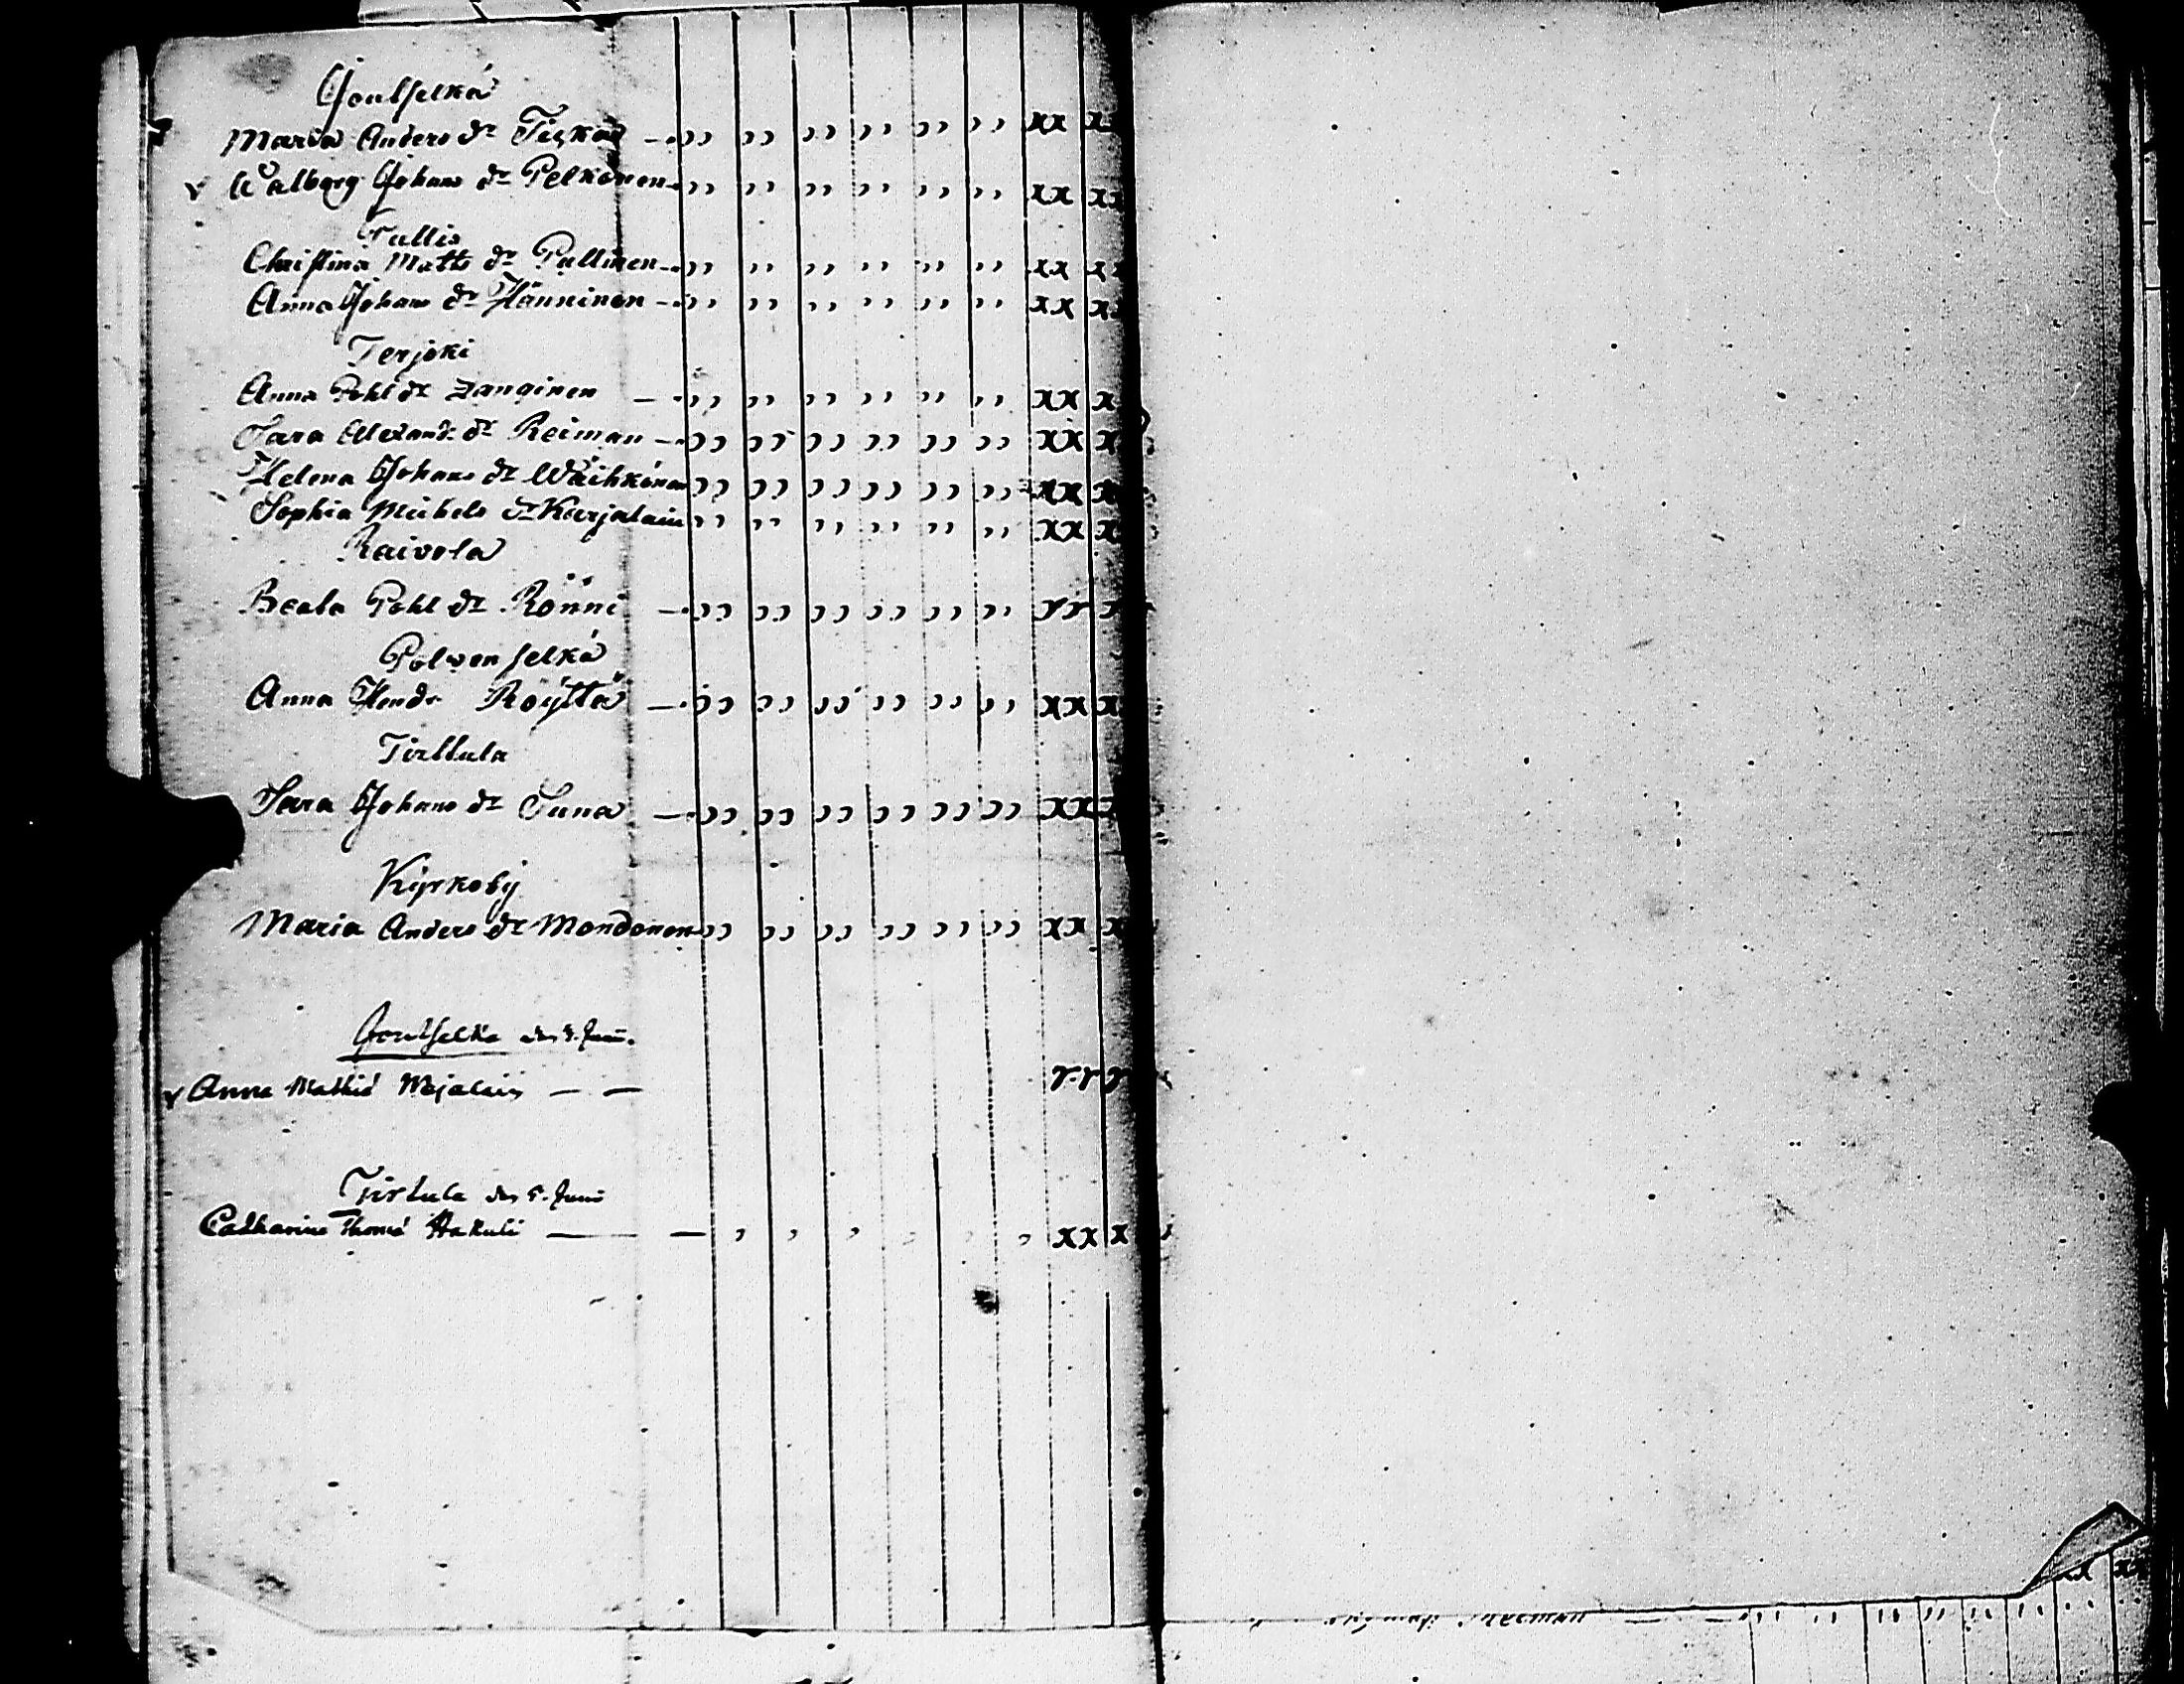 Joutselkä
Maria Anders dr — ,, ,, ,, ,, ,, ,, xx x
Walborg Johans dr Pelkonen ,, ,, ,, ,, ,, ,, xx xx
Pullis
Christina Matts dr Pullinen ,, ,, ,, ,, ,, ,, xx xx
Anna Johans dr Hänninen — ,, ,, ,, ,, ,, ,, xx x
Terjoki
Anna Pohl dr Zanginen — ,, ,, ,, ,, ,, ,, xx x
Sara Alexand. dr Reiman — ,, ,, ,, ,, ,, ,, xx x
Helena Johans dr ,, ,, ,, ,, ,, ,, xx x
Sophia Michels dr Karjalain ,, ,, ,, ,, ,, ,, xx x
Raivola
Beata Pohl dr Rönni — ,, ,, ,, ,, ,, ,,
Polwenselkä
Anna Hendr Röyttä — ,, ,, ,, ,, ,, ,, xx x
Tirttula
Sara Johans dr — ,, ,, ,, ,, ,, ,, xx x
Kyrkoby
Maria Anders dr Mondonen ,, ,, ,, ,, ,, ,, xx x
Joutselkä den Junii.
Anna Mathié — —
Tirtula den 5. Junii
Catharina Thomé Hakuli — — , , , , , , xx x